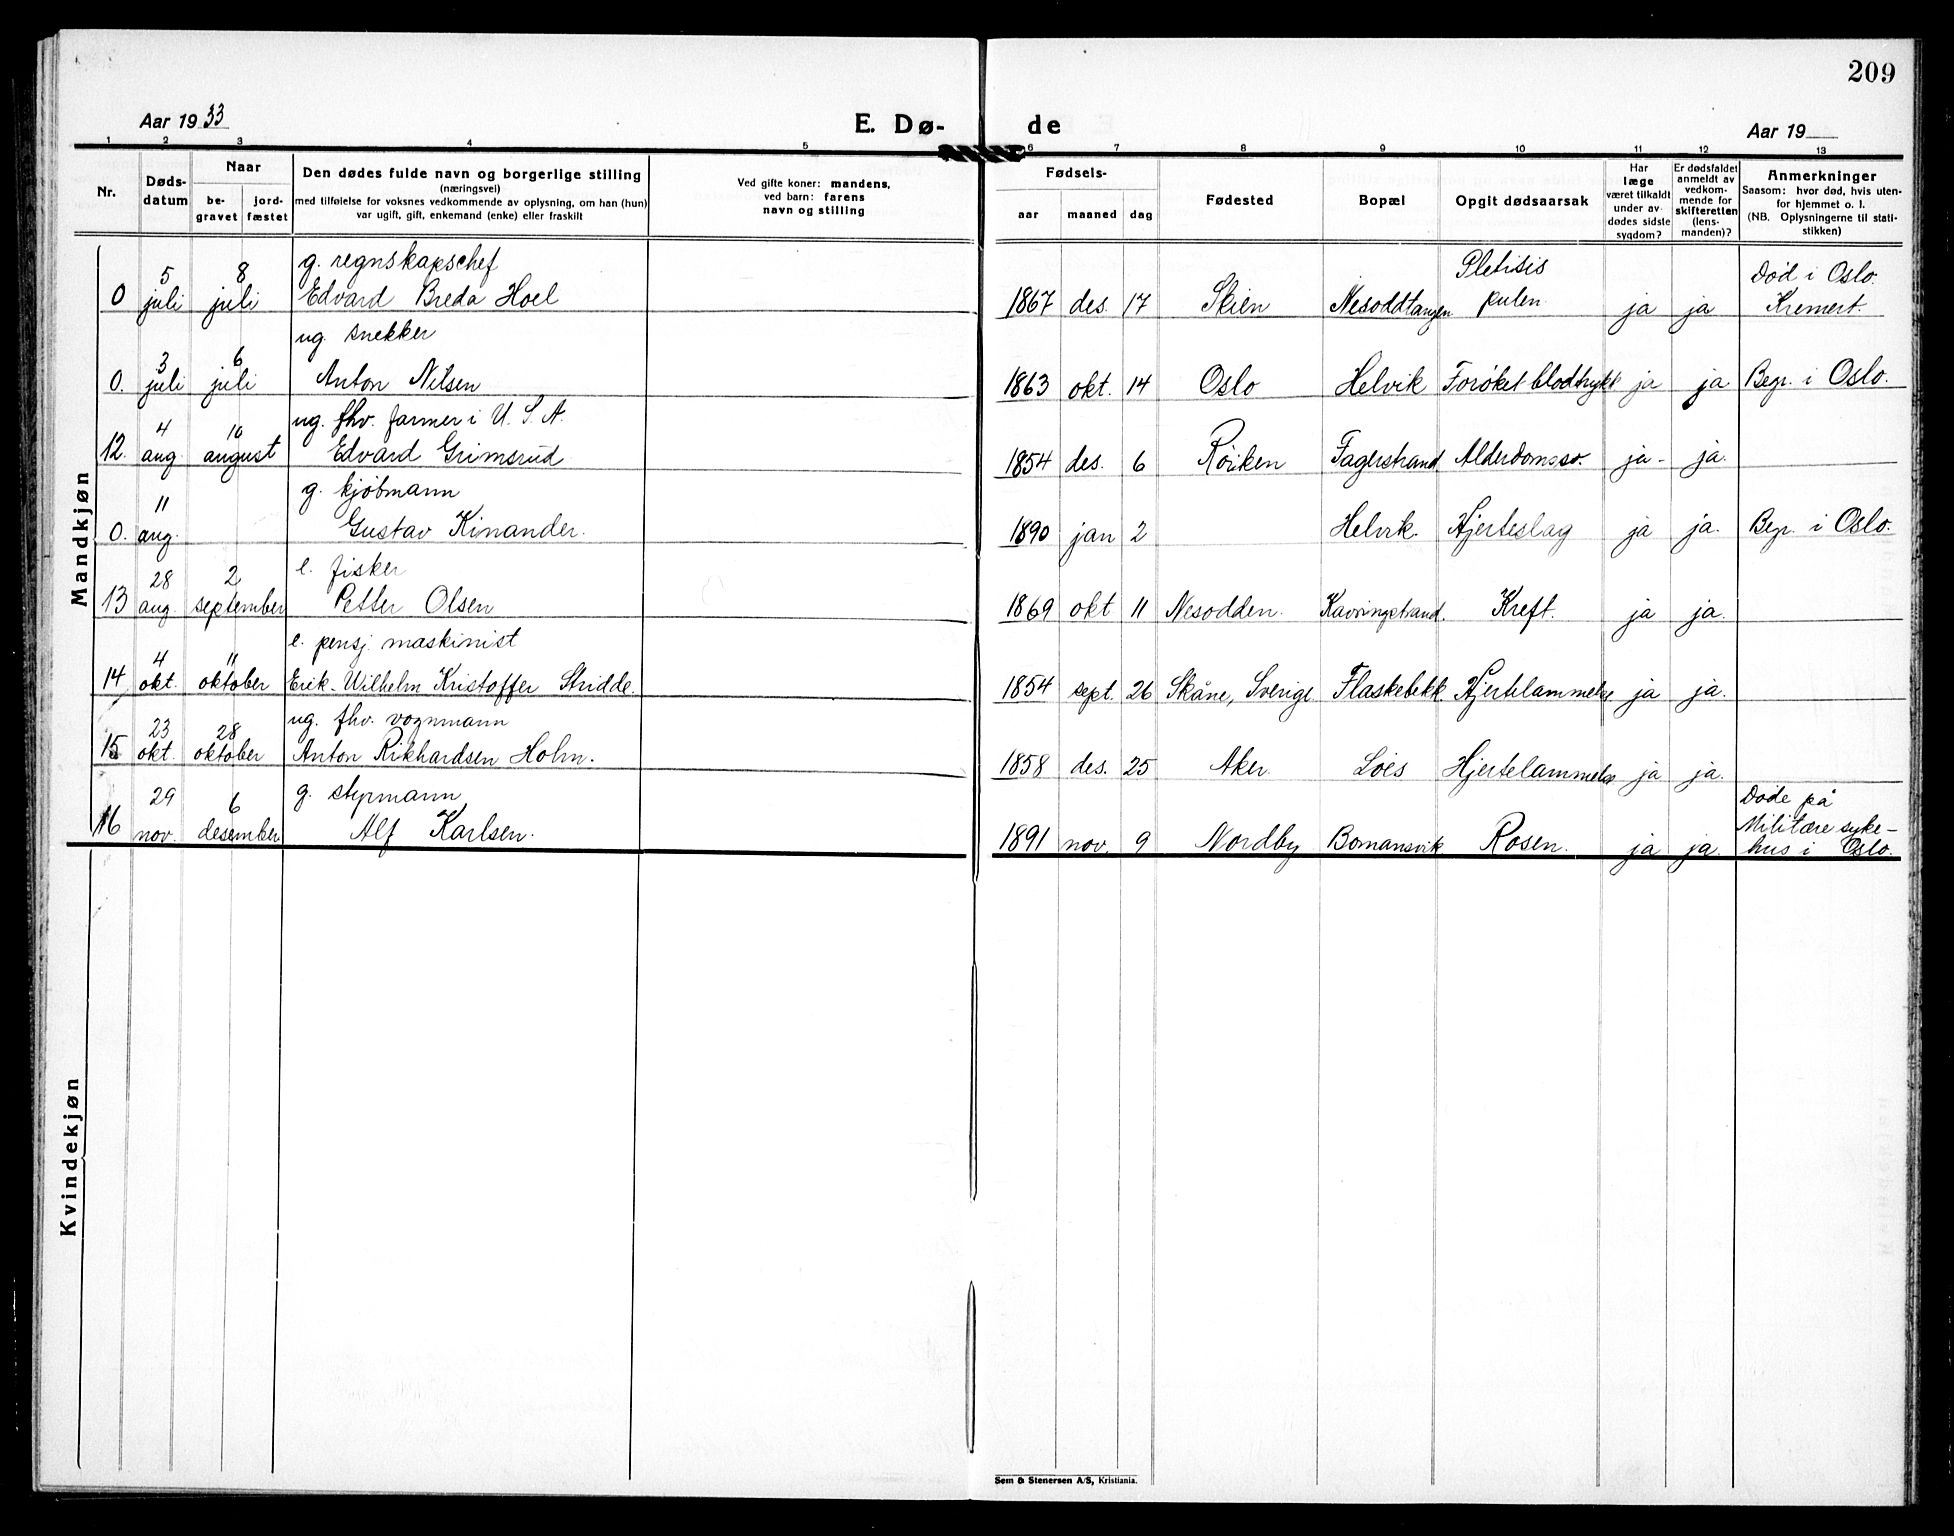 209
Aar 1933
E. Dø-
de
Aar 19
1 2 3 4 5 6 7 8 9 10 11 12 13
Nr.
Døds-
datum
Naar
be-
gravet
jord-
fæstet
Den dødes fulde navn og borgerlige stilling
(næringsvei)
med tilføielse for voksnes vedkommende av oplysning, om han (hun)
var ugift, gift, enkemand (enke) eller fraskilt
Ved gifte koner: mandens,
ved barn: farens
navn og stilling
Fødsels-
aar maaned dag
Fødested
Bopæl
Opgit dødsaarsak
Har
læge
været tilkaldt
under av-
dødes sidste
sygdom?
Er dødsfaldet
anmeldt av
vedkom-
mende for
skifteretten
(lens-
manden)?
Anmerkninger
Saasom: hvor død, hvis uten-
for hjemmet o. l.
(NB. Oplysningerne til stati-
stikken)
Mandkjøn
g. regnskapschef
0 5 juli 8 juli Edvard Breda Hoel 1867 des. 17 Skien Nesoddtangen Pletisis pulen. ja ja Død i Oslo. Kremert.
ug. snekker
0. 3 juli 6 juli Anton Nilsen 1863 okt. 14 Oslo Helvik Forøket blodtrykk ja ja Begr. i Oslo.
ug. fhv. farmer i U. S. A.
12. 4 aug. 10 august Edvard Grimsrud 1854 des. 6 Røiken Fagerstrand Alderdomssv. ja - ja.
g. kjøbmann
0. 11 aug. Gustav Kinander. 1890 jan 2 Helvik. Hjerteslag ja ja. Begr. i Oslo.
e. fisker
13 28 aug. 2 september Petter Olsen 1869 okt 11 Nesodden. Kavringstrand. Kreft. ja ja.
e. pensj. maskinist
14 4 okt. 11 oktober Erik Wilhelm Kristoffer Stridde. 1854 sept. 26 Skåne, Sverige Flaskebekk. Hjertelammelse ja ja.
ug. fhv. vognmann
15 23 okt. 28 oktober Anton Rikhardsen Holm. 1858 des. 25 Aker. Løes Hjertelammelse ja ja.
g. styrmann
16 29 nov. 6 desember Alf Karlsen. 1891 nov. 9 Nordby Bomansvik Rosen. ja ja. Døde på Militære syke- hus i Oslo.
Kvindekjøn
Sem & Stenersen A/S, Kristiania.